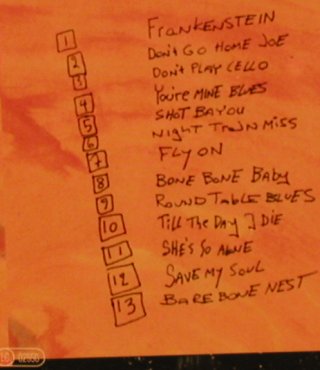 1 FRANKENSTEIN
2 DON'T GO HOME JOE
3 DON'T PLAY CELLO
4 YOU'RE MINE BLUES
5 SHOT BAYOU
6 NIGHT TRAIN MISS
7 FLY ON
8 BONE BONE BABY
9 ROUND TABLE BLUES
10 TILL THE DAY I DIE
11 SHE'S SO ALONE
12 SAVE MY SOUL
13 BARE BONE NEST